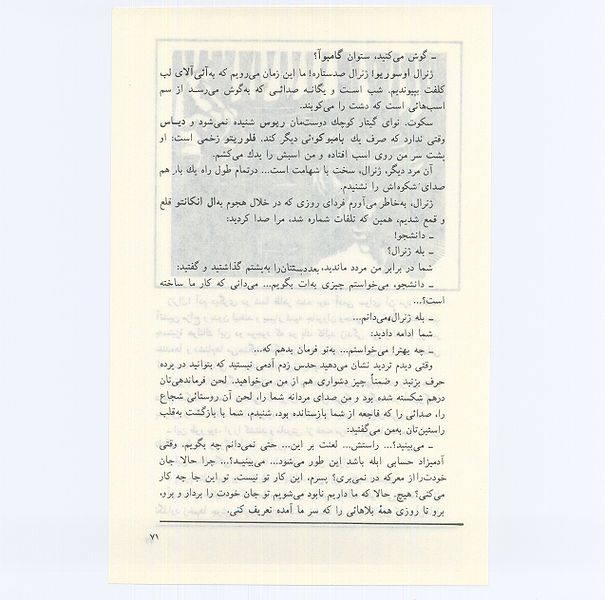 ـ گوش می‌کنید، ستوان گامبوآ؟
ژنرال اوسوریو! ژنرال صدستاره! ما این زمان می‌رویم که به‌آئی‌آلای لب
کلفت بپیوندیم. شب است و یگانه صدائی که به‌گوش می‌رسد از سم
اسب‌هائی است که دشت را می‌کوبند.
سکوت. نوای گیتار کوچك دوست‌مان ریوس شنیده نمی‌شود و دیـاس
وقتی ندارد که صرف یك بامبوکوئی دیگر کند. فلوریتو زخمی است: او
پشت سر من روی اسب افتاده و من اسبش را یدك می‌کشم.
آن مرد دیگر، ژنرال، سخت با شهامت است... درتمام طول راه یك بار هم
صدای شکوه‌اش را نشنیدم.
ژنرال، به‌خاطر می‌آورم فردای روزی که در خلال هجوم به‌ال انکانتو قلع
و قمع شدیم، همین که تلفات شماره شد، مرا صدا کردید:
ـ دانشجو!
ـ بله ژنرال؟
شما در برابر من مردد ماندید، بعددستتان‌را به‌پشتم گذاشتید و گفتید:
ـ دانشجو، می‌خواستم چیزی به‌ات بگویم... می‌دانی که کار ما ساخته
است؟...
ـ بله ژنرال،می‌دانم...
شما ادامه دادید:
ـ چه بهتر! می‌خواستم... به‌تو فرمان بدهم که...
وقتی دیدم تردید نشان می‌دهید حدس زدم آدمی نیستید که بتوانید در پرده
حرف بزنید و ضمناً چیز دشواری هم از من می‌خواهید. لحن فرماندهی‌تان
درهم شکسته شده بود و من صدای مردانه شما را، لحن آن روستائی شجاع
را، صدائی را که فاجعه از شما بازستانده بود، شنیدم، شما با بازگشت به‌قلب
راستین‌تان به‌من می‌گفتید:
ـ می‌بینید؟... راستش... لعنت بر این... حتی نمی‌دانم چه بگویم. وقتی
آدمیزاد حسابی ابله باشد این طور می‌شود... می‌بینیـد؟... چرا حالا جان
خودت‌را از معرکه در نمی‌بری؟ پسرم، این کار تو نیست. تو این جا چه کار
می‌کنی؟ هیچ. حالا که ما داریم نابود می‌شویم تو جان خودت را بردار و برو،
برو تا روزی همهٔ بلاهائی را که سر ما آمده تعریف کنی.
۷۱